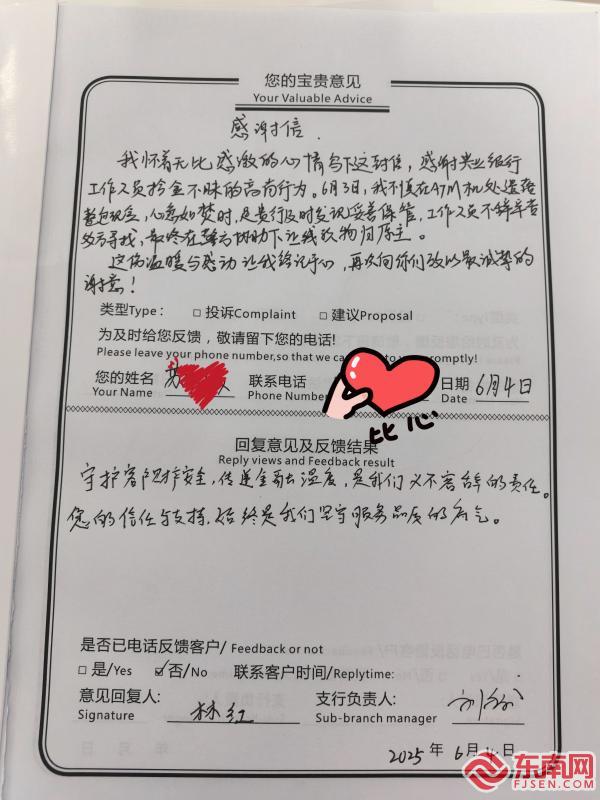 您的宝贵意见
Your Valuable Advice
感谢信.
我怀着无比感激的心情写下这封信，感谢兴业银行
工作人员拾金不昧的高尚行为。6月3日，我不慎在ATM机处遗落
现金，心急如焚时，是贵行及时发现妥善保管，工作人员不辞辛苦
多方寻找，最终在警方协助下让钱款物归原主。
这份温暖与感动让我铭记于心，再次向你们致以最诚挚的
谢意！
类型Type: □ 投诉Complaint □ 建议Proposal
为及时给您反馈，敬请留下您的电话!
Please leave your phone number,so that we ca to you promptly!
您的姓名 苏 联系电话 日期 6月4日
Your Name Phone Number Date
比心
回复意见及反馈结果
Reply views and Feedback result
守护客户财产安全，传递金融温度，是我们义不容辞的责任。
您的信任与支持，始终是我们坚守服务品质的底气。
是否已电话反馈客户/ Feedback or not
□ 是/Yes ☑否/No 联系客户时间/Replytime:
意见回复人: 林红 支行负责人:
Signature Sub-branch manager
2025 年 6 月 4 日
东南网
FJSEN.COM